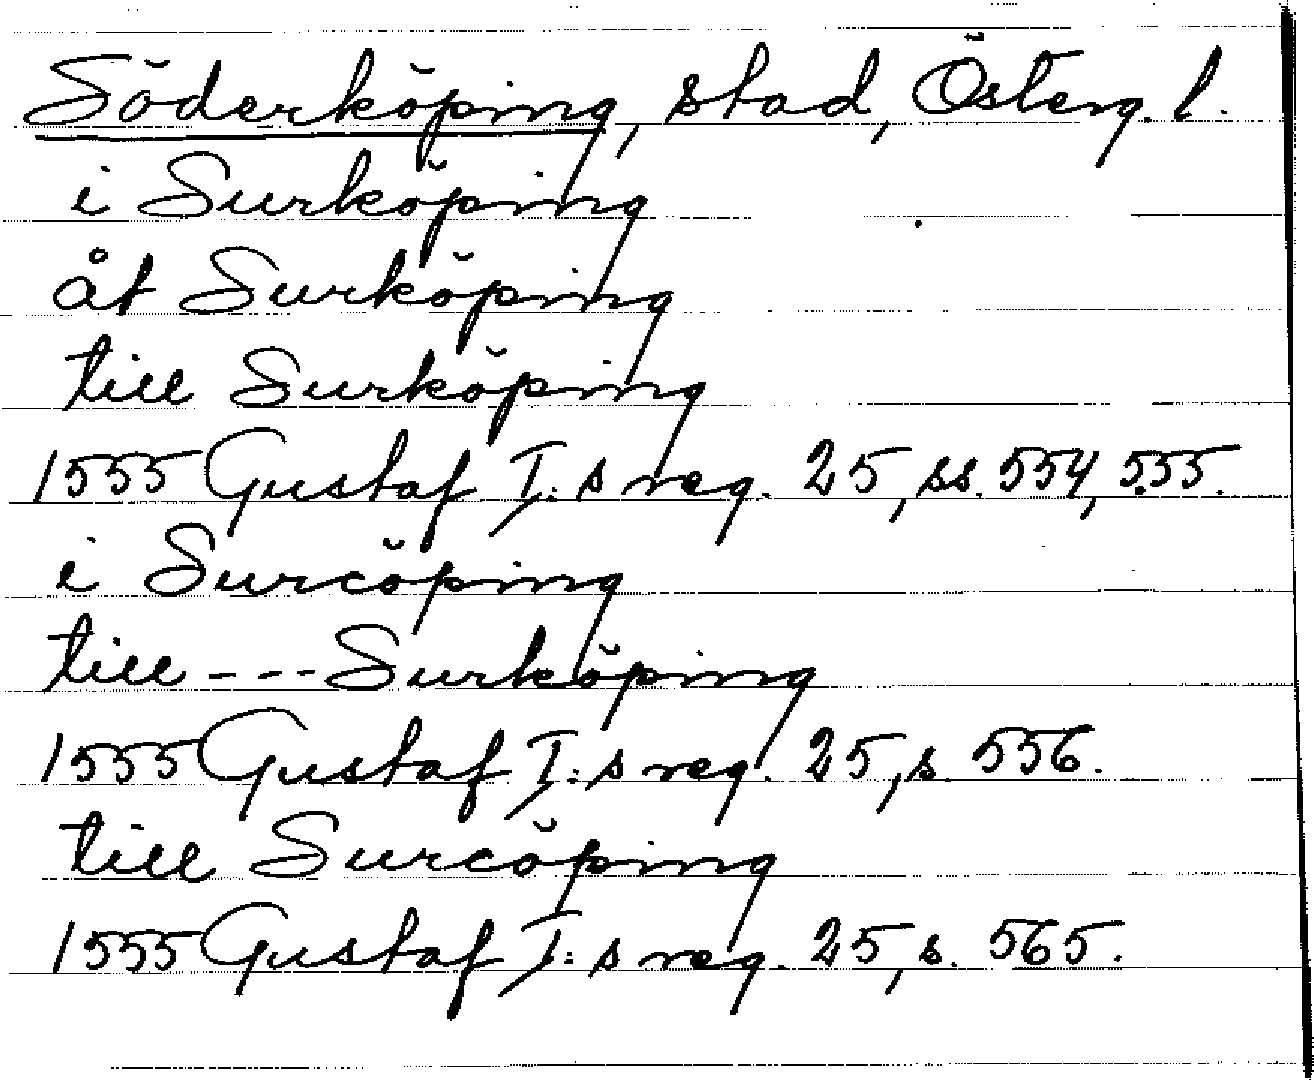 Söderköping, stad, Österg. l.
i Surköping
åt Surköping
till Surköping
1555 Gustaf I:s reg. 25, ss. 554, 555.
i Surcöping
till --- Surköping
1555 Gustaf I:s reg. 25, s. 556.
till Surcöping
1555 Gustaf I:s reg. 25, s. 565.